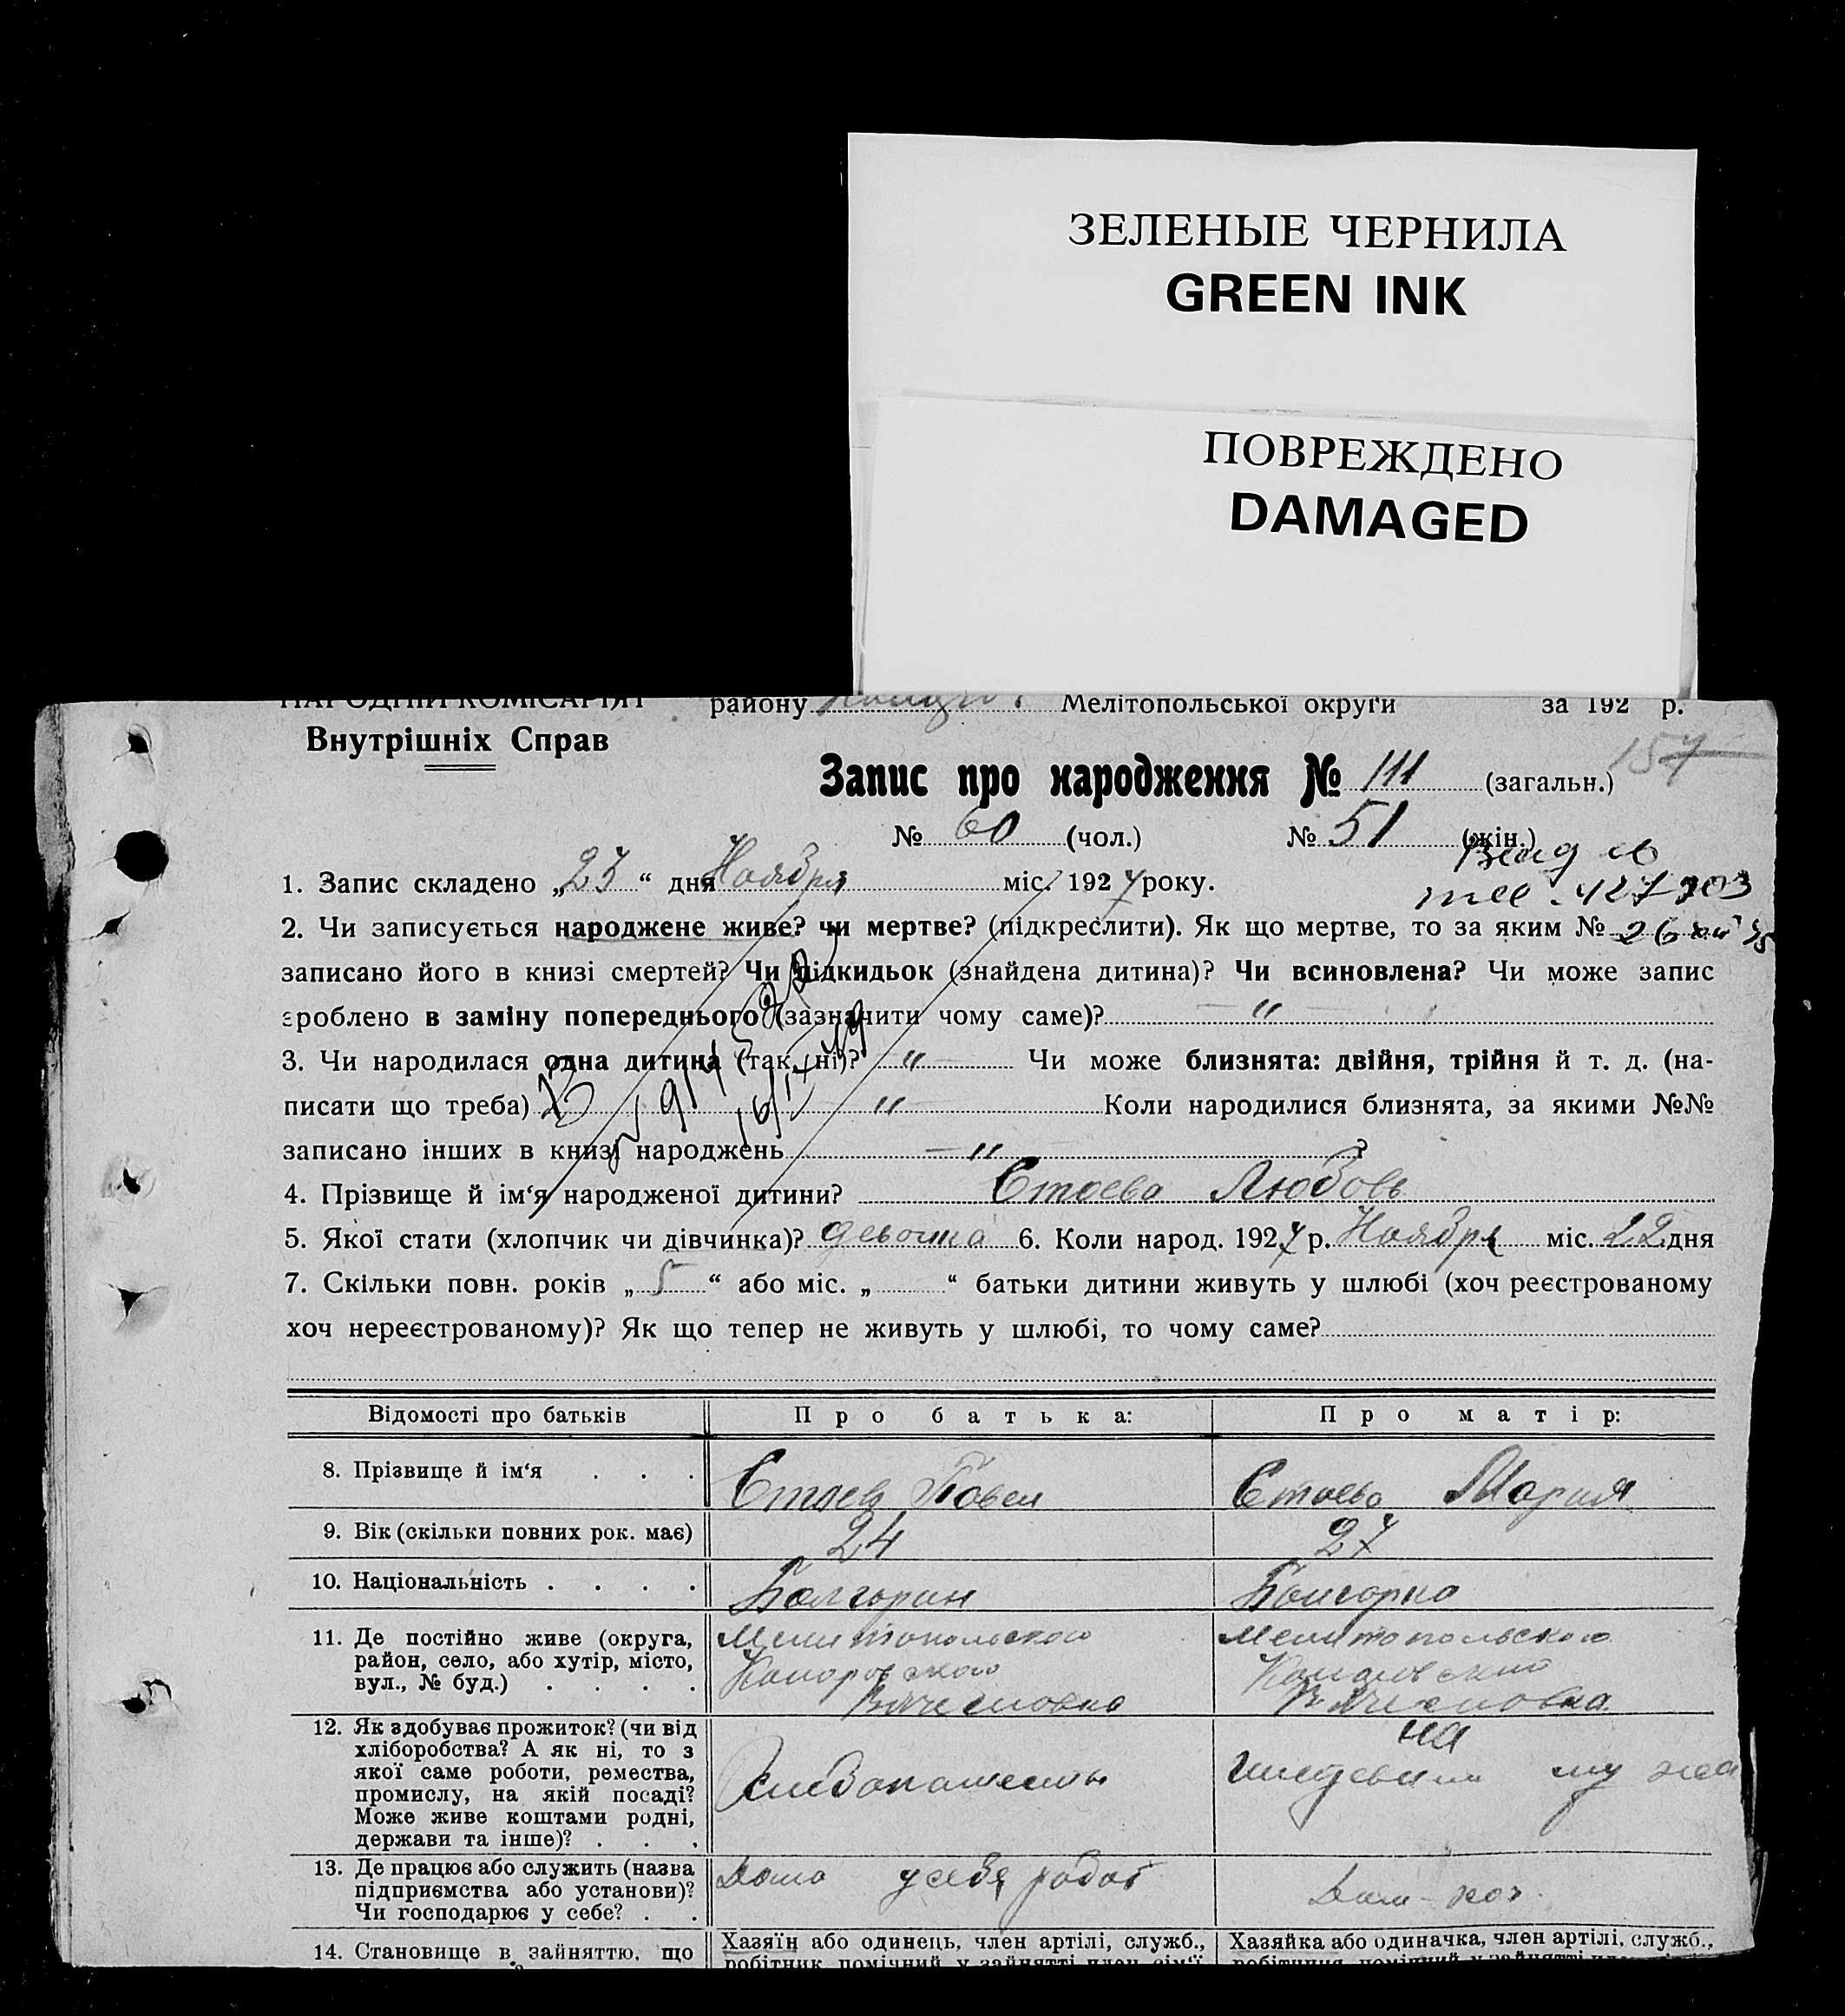 ЗЕЛЕНЫЕ ЧЕРНИЛА
GREEN INK
ПОВРЕЖДЕНО
DAMAGED
НАРОДНІЙ КОМІСАРІЯТ району Мелітопольської округи за 192 р.
Внутрішніх Справ
157
Запис про народження № 111 (загальн.)
№ 60 (чол.) № 51 (жін.)
1. Запис складено „23“ дня Ноября міс. 1927 року.
2. Чи записується народжене живе? чи мертве? (підкреслити). Як що мертве, то за яким №
записано його в книзі смертей? Чи підкидьок (знайдена дитина)? Чи всиновлена? Чи може запис
зроблено в заміну попереднього (зазначити чому саме)? — „ —
3. Чи народилася одна дитина (так, ні)? — „ — Чи може близнята: двійня, трійня й т. д. (на-
писати що треба) — „ — Коли народилися близнята, за якими №№
записано інших в книзі народжень — „ — ?
4. Прізвище й ім‘я народженої дитини? Стоева Любовь
5. Якої стати (хлопчик чи дівчинка)? девочка 6. Коли народ. 1927 р. Ноября міс. 22 дня
7. Скільки повн. років „5“ або міс. „ “ батьки дитини живуть у шлюбі (хоч реєстрованому
хоч нереєстрованому)? Як що тепер не живуть у шлюбі, то чому саме?
Відомості про батьків Про батька: Про матір:
8. Прізвище й ім‘я . . . Стоев Павел Стоева Мария
9. Вік (скільки повних рок. має) 24 27
10. Національність . . . . Болгарин Болгарка
11. Де постійно живе (округа, Мелитопольского Мелитопольского
район, село, або хутір, місто,
вул., № буд.) . . . . Вячеславка Вячеславка
12. Як здобуває прожиток? (чи від на
хліборобства? А як ні, то з
якої саме роботи, ремества, Хлебопашеств иждевении мужа
промислу, на якій посаді?
Може живе коштами родні,
держави та інше)? . . .
13. Де працює або служить (назва Дома у себя работ
підприємства або установи)? Дом-хоз.
Чи господарює у себе? . .
14. Становище в зайняттю, що Хазяїн або одинець, член артілі, служб., Хазяйка або одиначка, член артілі, служб.,
робітник, помічний у зайнятті член сім‘ї